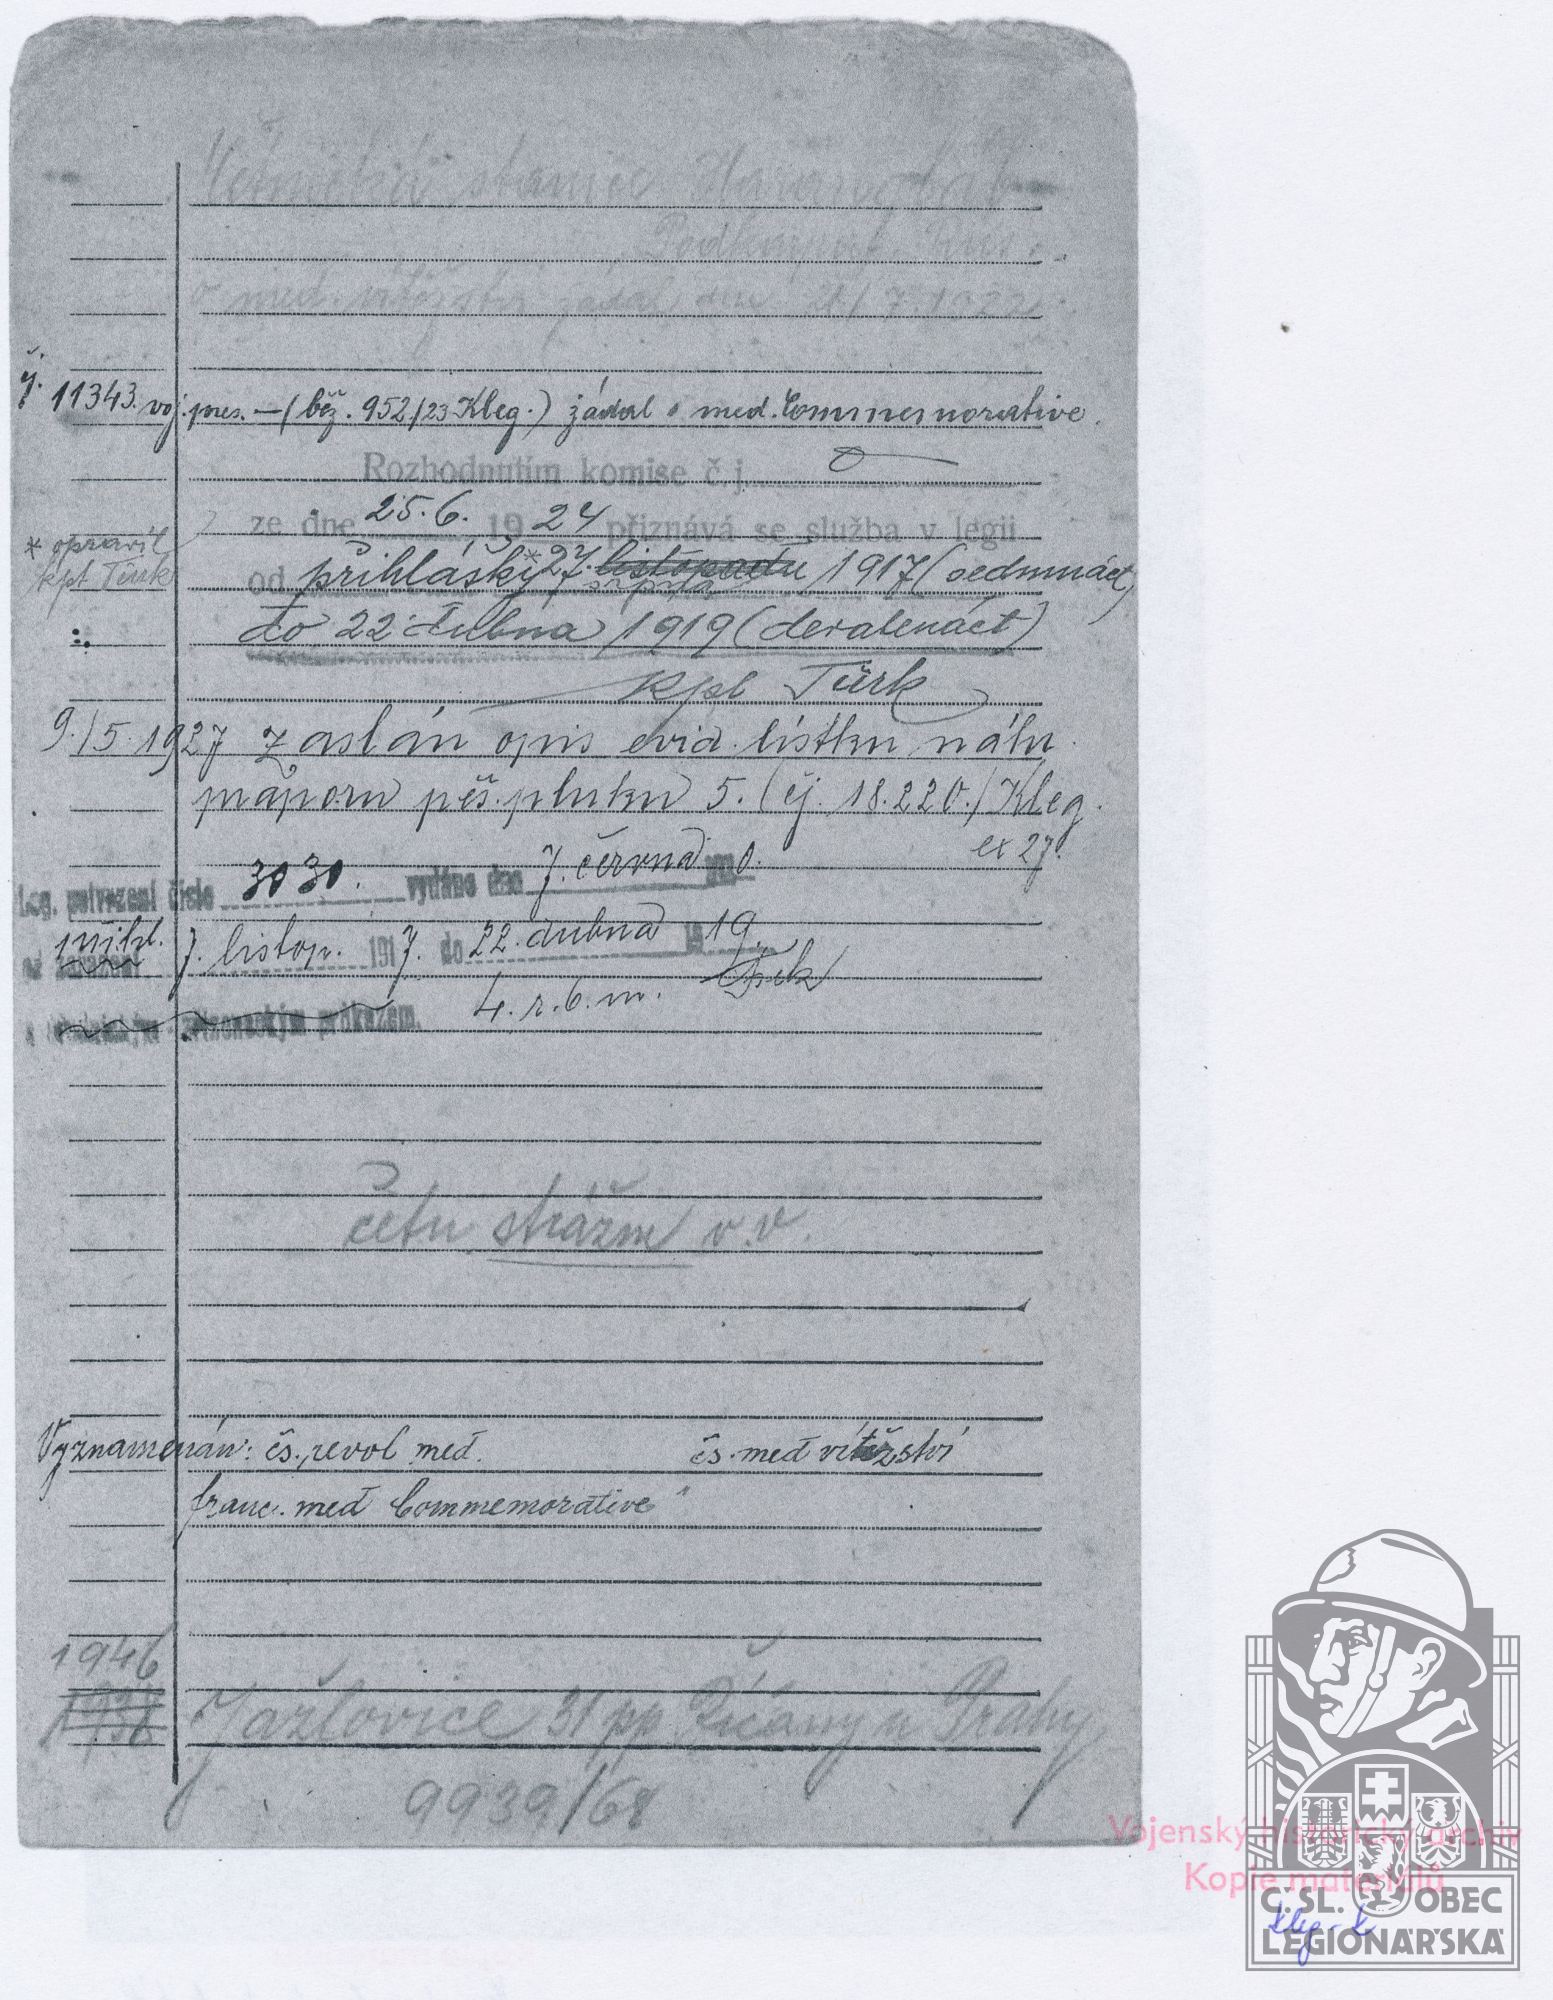 stanice
Podkarpat. Rus.
o med. vítězství žádal dne 21/7.1922
čj. 11343. voj. pres. — (běž. 952/23 Kleg.) žádal o med. Commemorative.
Rozhodnutím komise č. j.
ze dne 25.6. 1924 přiznává se služba v legii
* opravil
kpt Türk
od přihlášky * 27. listopadu 1917 (sedmnáct)
srpna
do 22 dubna 1919 (devatenáct)
kpt Türk
9./5. 1927 zaslán opis evid. lístku náhr.
praporu pěš. pluku 5. (čj. 18.220./Kleg.
ex 27.
Leg. potvrzení číslo 3030. vydáno dne 7. června 0.
přihl.
od zařazení 7. listop. 1917. do 22. dubna 1919.
4. r. 6. m.
průkazem.
četn. strážm v. v.
Vyznamenán: čs. revol med. čs. med vítězství
franc. med Commemorative"
1946
1938 Jažlovice 31 pp Říčany u Prahy
9939/68
Vojenský historický archiv
Kopie materiálů
Kleg - k
Č.SL. OBEC
LEGIONÁŘSKÁ